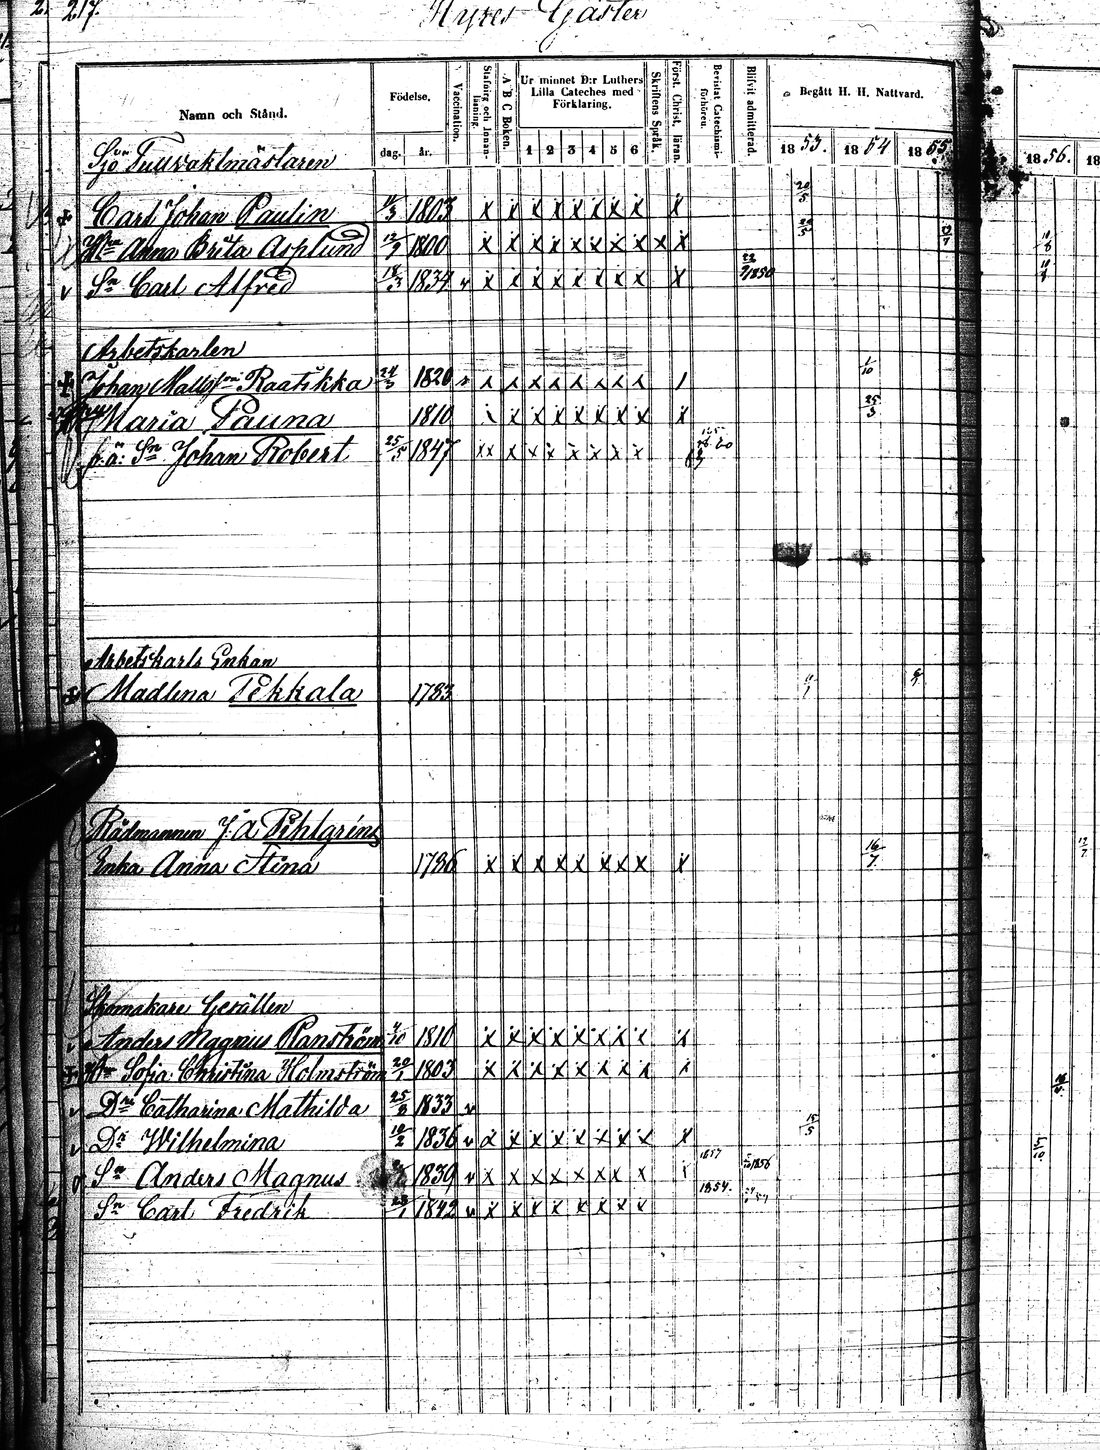 217.
Hyres Gäster
Namn och Stånd.
Födelse.
dag. år.
Vaccination.
Stafning och Innanläsning.
A B C Boken.
Ur minnet D:r Luthers Lilla Cateches med Förklaring.
1 2 3 4 5 6
Skriftens Språk.
Först. Christ. läran.
Bevistat Catechismi-förhören.
Blifvit admitterad.
Begått H. H. Nattvard.
1853. 1854 1855 1856. 18
Sjö Tullvaktmästaren
Carl Johan Paulin 1803 x x x x x x x x x
Anna Brita Asplund 12/9 1800 x x x x x x x x x x
Sn Carl Alfred 18/3 1834 v x x x x x x x x x
Arbetskarlen
Johan Matts Raatikka 24/3 1820 1/10
Maria Pauna 1810 x x x x x x x x 25/3
f. ä: Sn Johan Robert 25/5 1847 xx x x x x x x x
Arbetskarls Enkan
Madlena Pekkala 1783
Rådmannen J. A Pihlgrens
Enka Anna Stina 1786 x x x x x x x x x 16/7 12/7
Skomakare Gesällen
Anders Magnus Ranström 1810 x x x x x x x x x
Sofia Christina Holmström 20/1 1803 x x x x x x x x
Dr Catharina Mathilda 25/8 1833 v
Dr Wilhelmina 10/2 1836 v x x x x x x x x x 15/5
Sn Anders Magnus 1839 v x x x x x x x x 1857 1856
Sn Carl Fredrik 1842 v x x x x x x x x 1854.